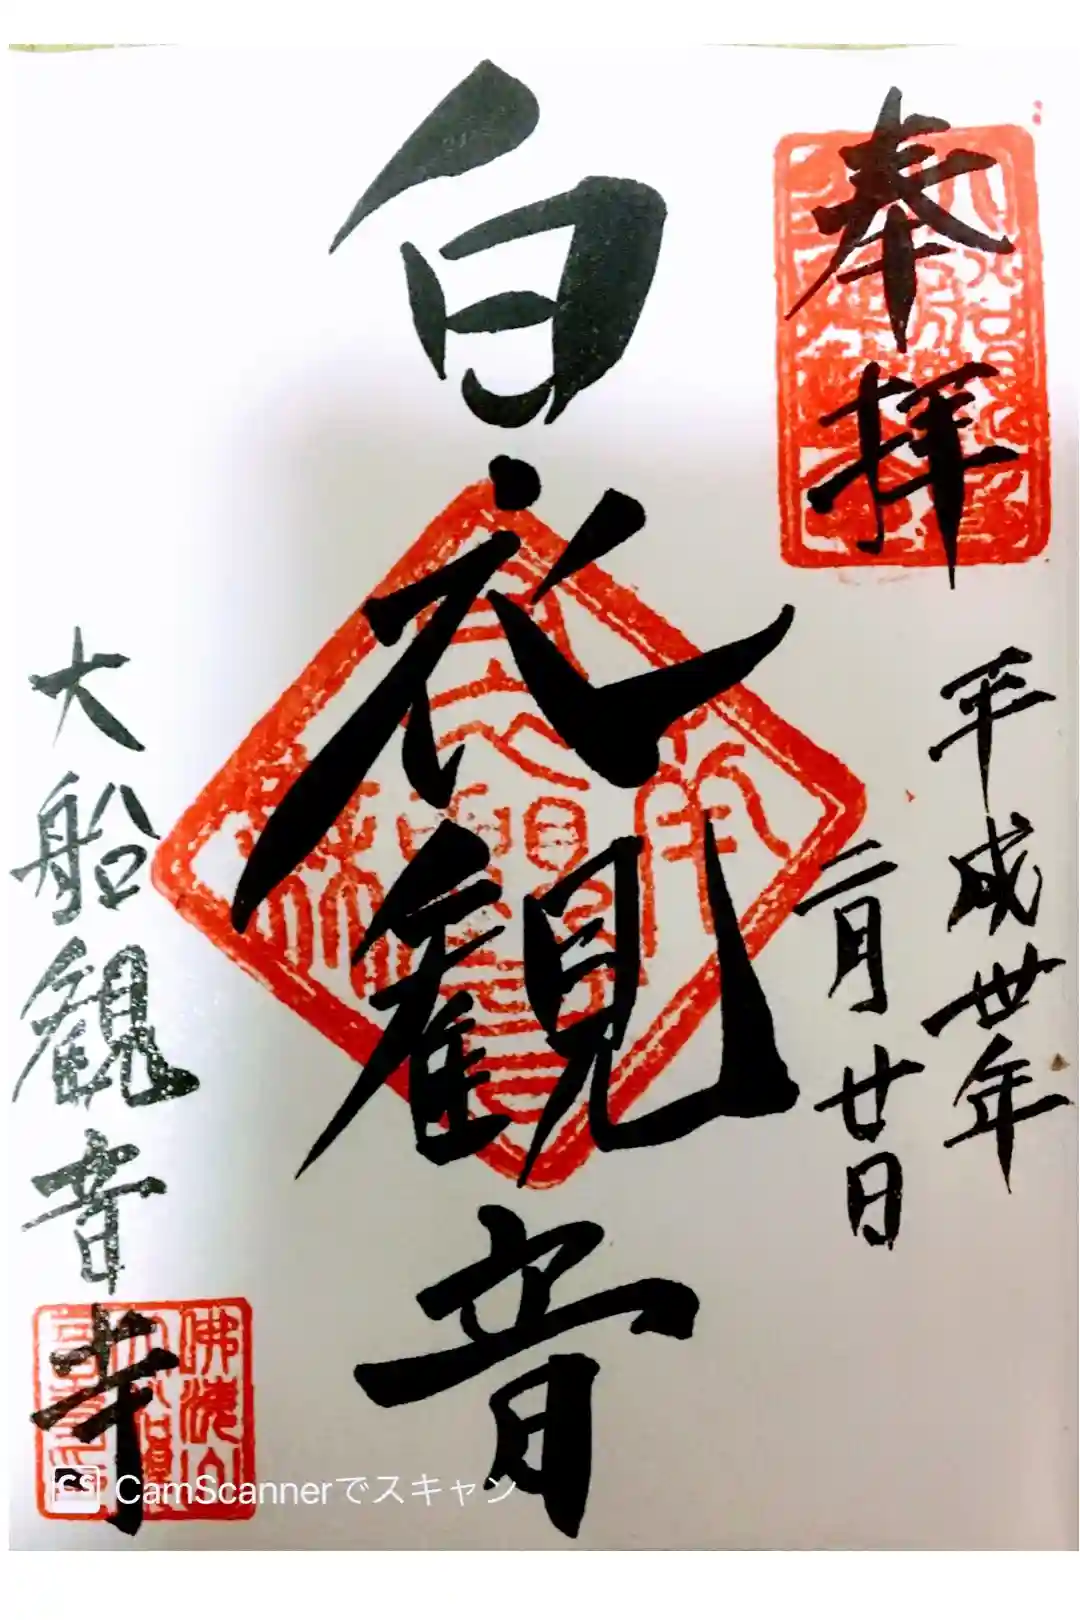 奉拝
平成卅年
二月廿日
白衣観音
大船観音寺
CamScannerでスキャン